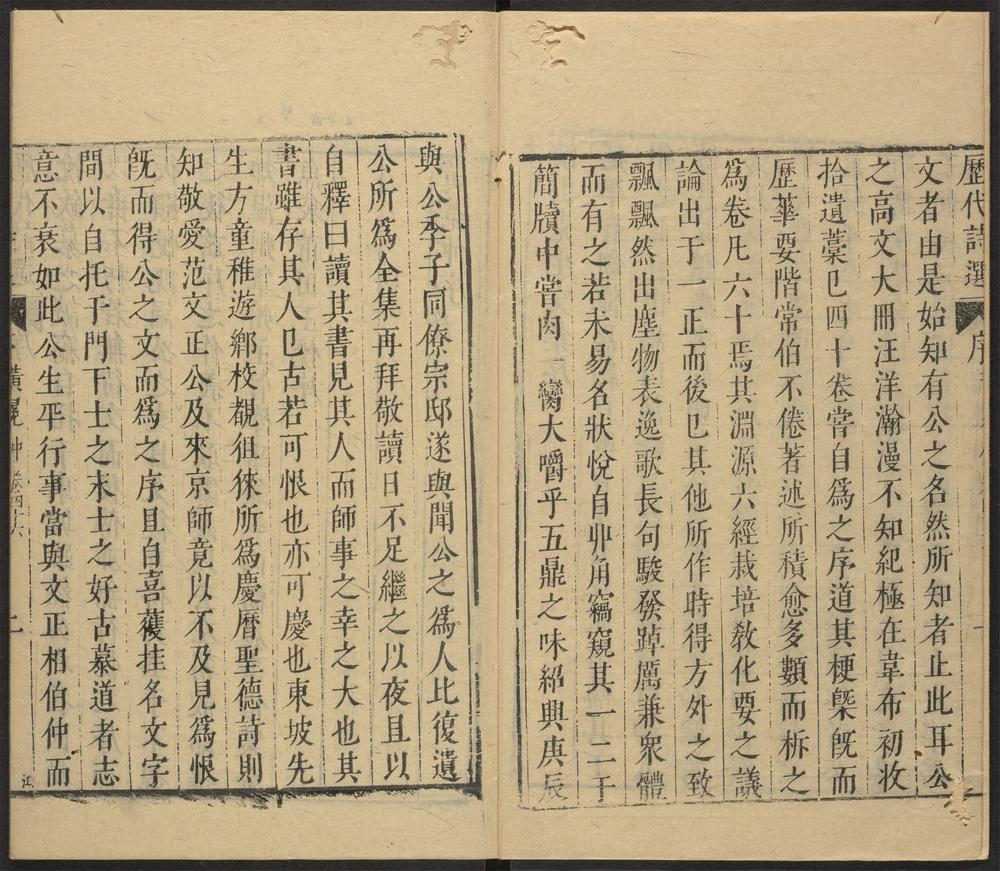 歴代詩選 序
文者由是始知有公之名然所知者止此耳公
之高文大冊汪洋瀚漫不知紀極在韋布初收
拾遺藁巳四十卷嘗自爲之序道其梗槩旣而
歷華要階常伯不倦著述所積愈多類而柝之
爲卷凡六十焉其淵源六經栽培敎化要之議
論出于一正而後巳其他所作時得方外之致
飄飄然出塵物表逸歌長句駿發踔厲兼衆體
而有之若未易名狀悅自丱角竊窺其一二于
簡牘中嘗肉一臠大嚼乎五鼎之味紹興庚辰
與公季子同僚宗邸遂與聞公之爲人比復遺
公所爲全集再拜敬讀日不足繼之以夜且以
自釋曰讀其書見其人而師事之幸之大也其
書雖存其人巳古若可恨也亦可慶也東坡先
生方童稚遊鄉校覩徂徠所爲慶曆聖德詩則
知敬愛范文正公及來京師竟以不及見爲恨
旣而得公之文而爲之序且自喜獲挂名文字
間以自托于門下士之末士之好古慕道者志
意不衰如此公生平行事當與文正相伯仲而
黃冕仲 卷四六